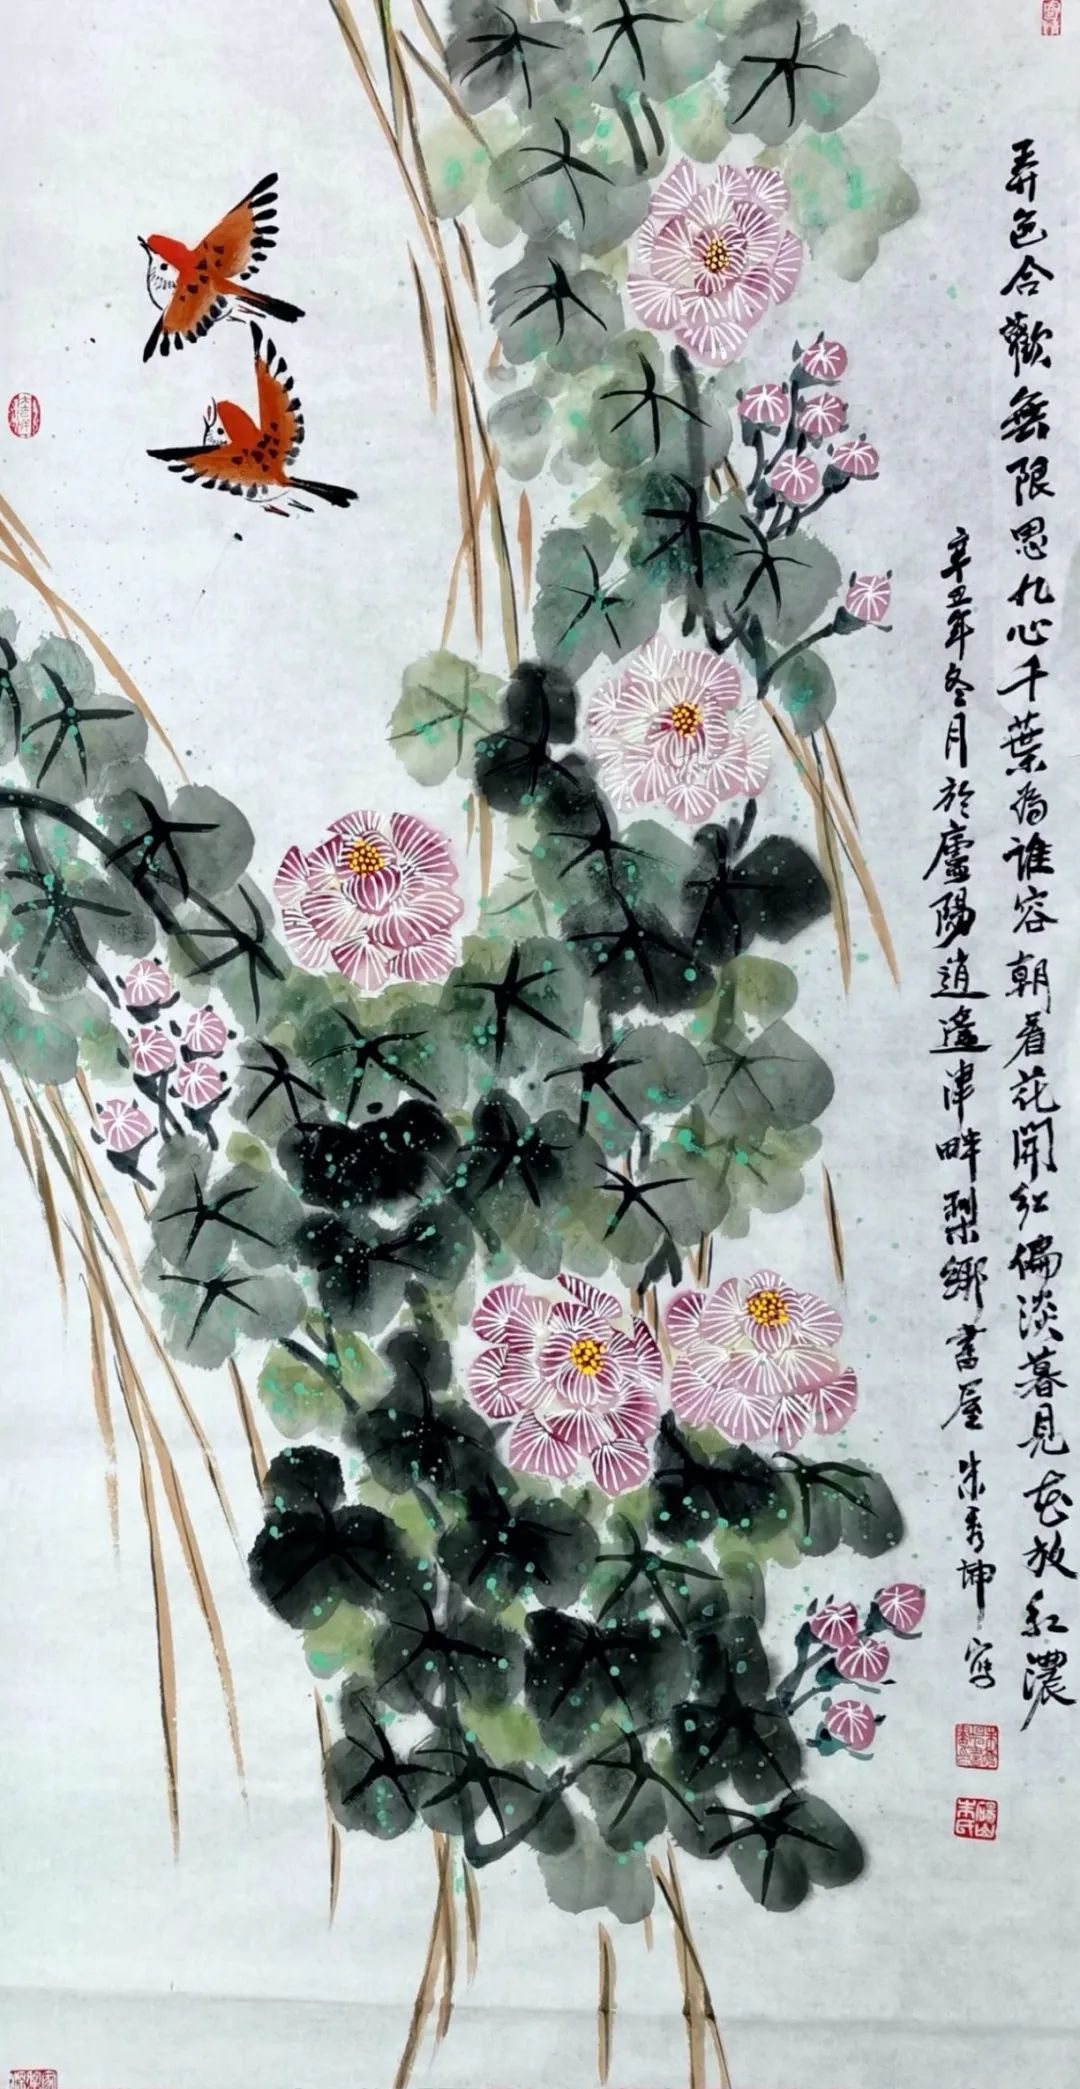 弄色合歡無限思九心千葉為誰容朝看花開紅偏淡暮見花放紅濃
辛丑年冬月於廬陽逍遙津畔梨鄉書屋朱秀坤寫
碭山朱氏